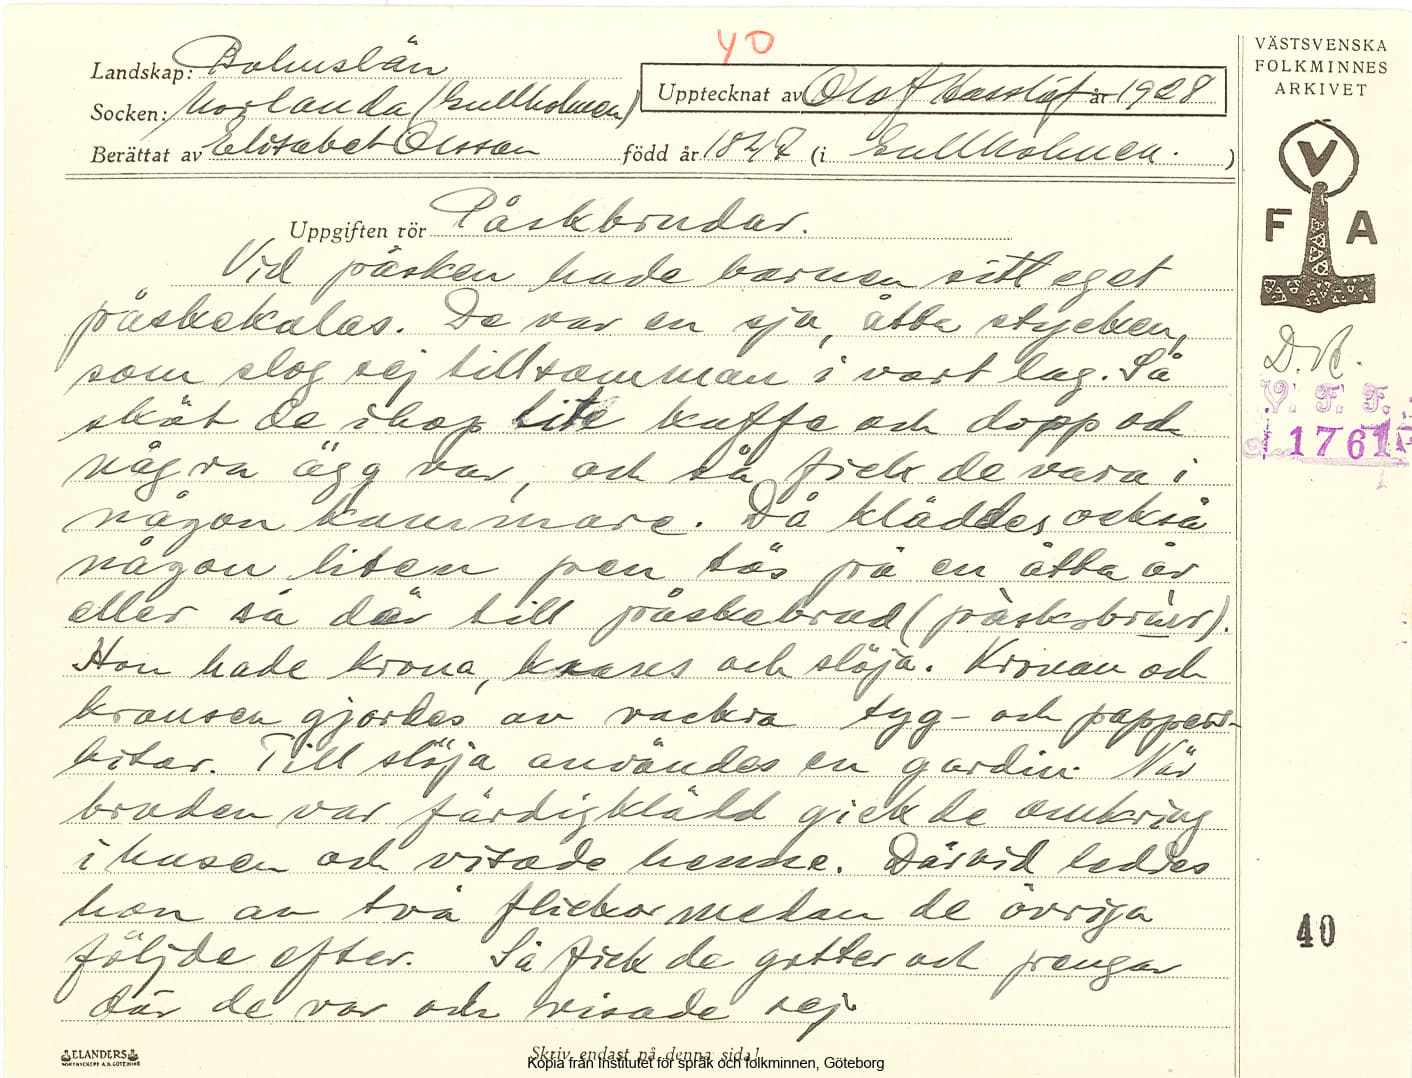 40
VÄSTSVENSKA
FOLKMINNES
ARKIVET
Landskap: Bohuslän
Socken: Morlanda (Gullholmen)
Upptecknat av Olof Hasslöf år 1928
Berättat av Elisabet Olsson född år 1847 (i Gullholmen. )
V
F A
Uppgiften rör Påskbrudar.
Vid påsken hade barnen sitt eget
påskekalas. De var en sju, åtta stycken,
som slog sej tillsamman i vart lag. Så
sköt de ihop lite kaffe och dopp och
några ägg var, och så fick de vara i
någon kammare. Då kläddes också
någon liten pen tös på en åtta år
eller så där till påskebrud (påskebruer).
Hon hade krona, krans och slöja. Kronan och
kransen gjordes av vackra tyg- och pappers-
bitar. Till slöja användes en gardin. När
bruden var färdigklädd gick de omkring
i husen och visade henne. Därvid leddes
hon av två flickor medan de övriga
följde efter. Så fick de gotter och pengar
där de var och visade sej.
D.A.
V. F. F.
1761
40
ELANDERS
Skriv endast på denna sida!
Kopia från Institutet för språk och folkminnen, Göteborg